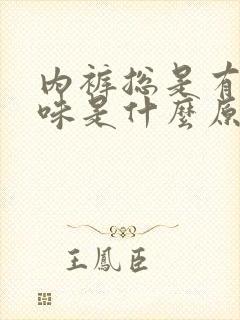 内裤总是有
味是什麼原
王鳳臣